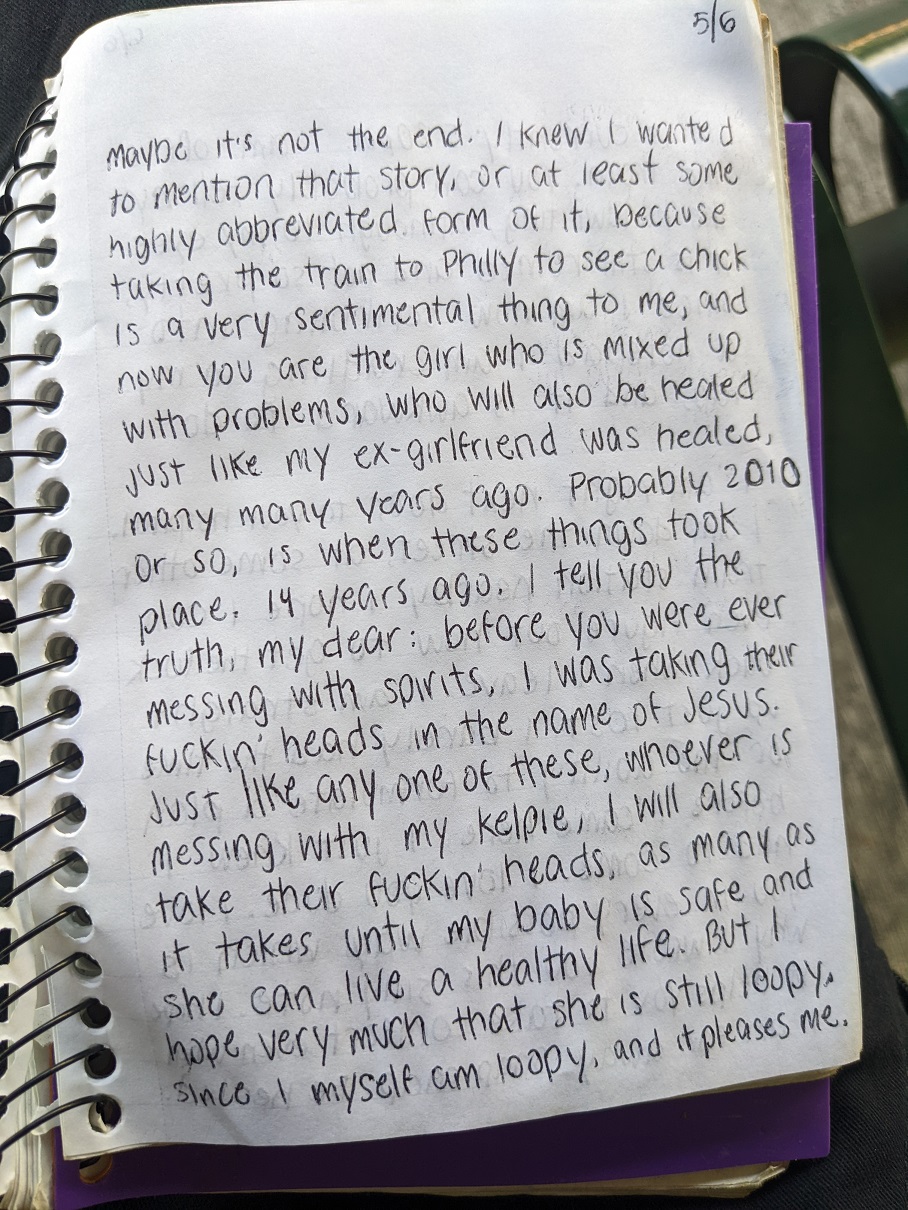 5/6
Maybe it's not the end. I knew I wanted
to mention that story, or at least some
highly abbreviated form of it, because
taking the train to Philly to see a chick
is a very sentimental thing to me, and
now you are the girl who is mixed up
with problems, who will also be healed
just like my ex-girlfriend was healed,
many many years ago. Probably 2010
or so, is when these things took
place. 14 years ago. I tell you the
truth, my dear: before you were ever
messing with spirits, I was taking their
fuckin' heads in the name of Jesus.
Just like any one of these, whoever is
messing with my kelpie, I will also
take their fuckin' heads, as many as
it takes until my baby is safe and
she can live a healthy life. But I
hope very much that she is still loopy,
since I myself am loopy, and it pleases me.